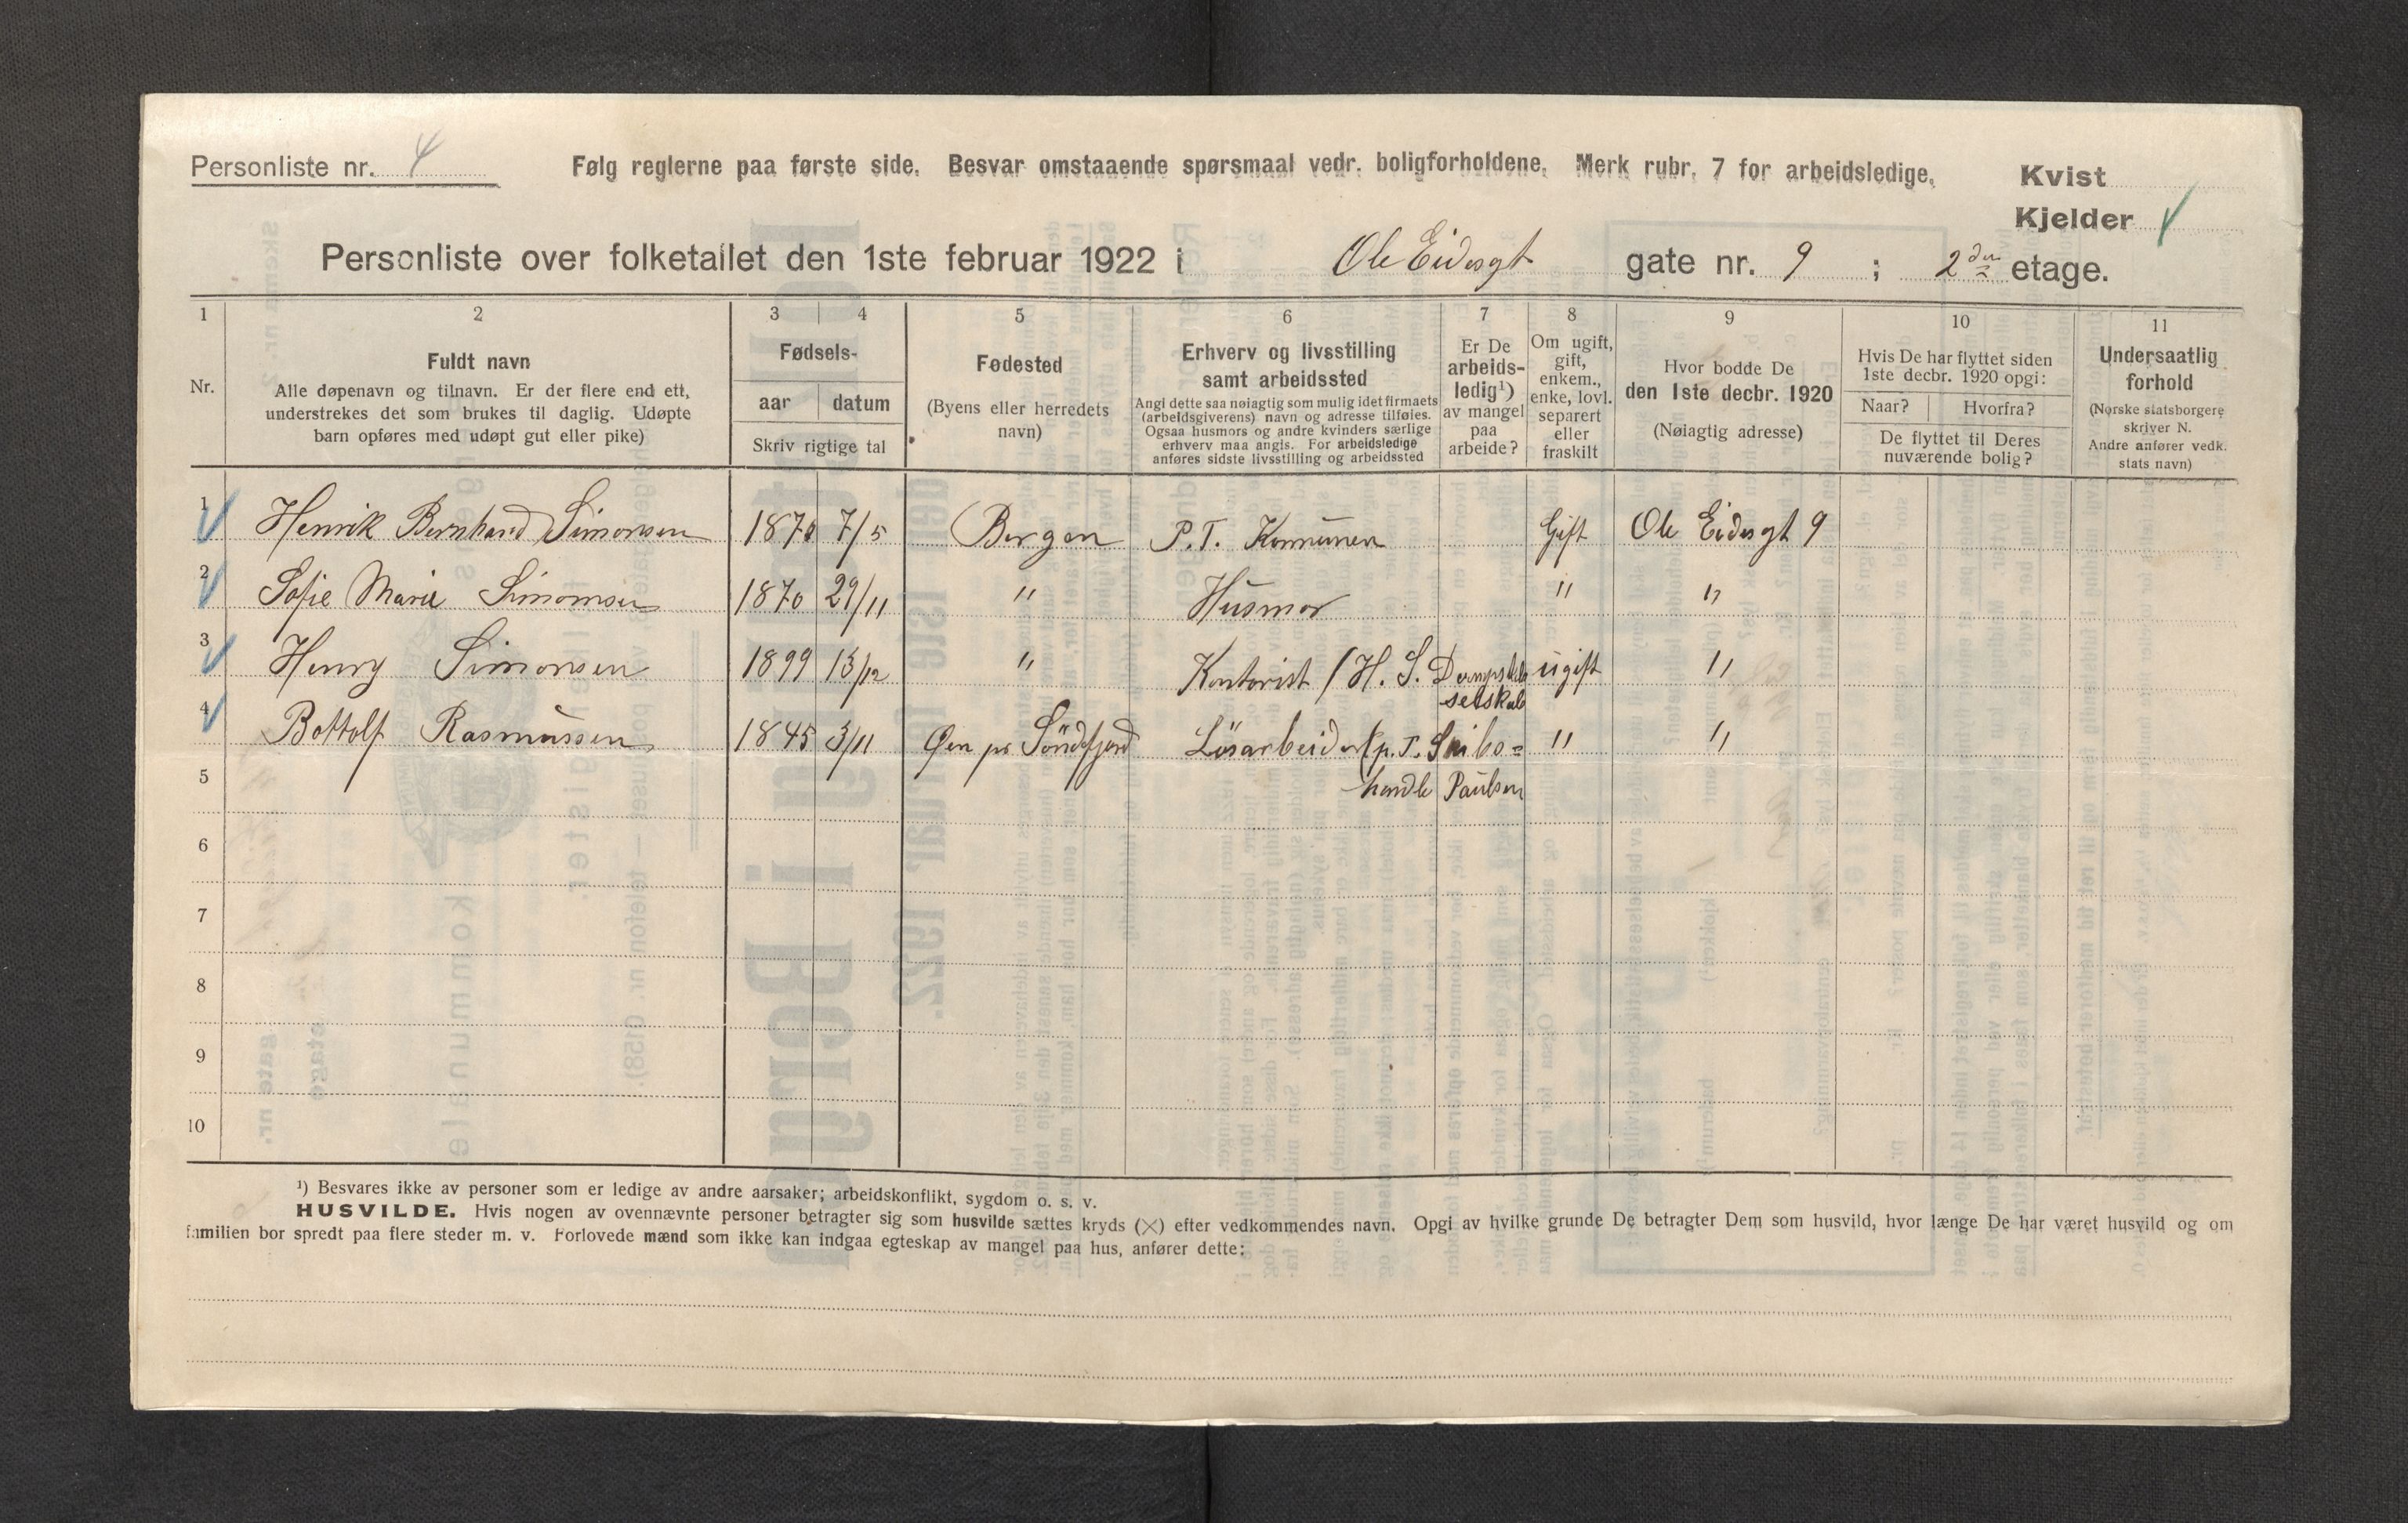 Personliste nr. 4
Følg reglerne paa første side. Besvar omstaaende spørsmaal vedr. boligforholdene. Merk rubr. 7 for arbeidsledige.
Kvist
Kjelder
Personliste over folketallet den 1ste februar 1922 i Ole Eidesgt gate nr. 9 ; 2den etage.
1 2 3 4 5 6 7 8 9 10 11
Nr.
Fuldt navn
Alle døpenavn og tilnavn. Er der flere end ett,
understrekes det som brukes til daglig. Udøpte
barn opføres med udøpt gut eller pike)
Fødsels-
aar datum
Skriv rigtige tal
Fødested
(Byens eller herredets
navn)
Erhverv og livsstilling
samt arbeidssted
Angi dette saa nøiagtig som mulig idet firmaets
(arbeidsgiverens) navn og adresse tilføies.
Ogsaa husmors og andre kvinders særlige
erhverv maa angis. For arbeidsledige
anføres sidste livsstilling og arbeidssted
Er De
arbeids-
ledig¹)
av mangel
paa
arbeide?
Om ugift,
gift,
enkem.,
enke, lovl.
separert
eller
fraskilt
Hvor bodde De
den 1ste decbr. 1920
(Nøiagtig adresse)
Hvis De har flyttet siden
1ste decbr. 1920 opgi:
Naar? Hvorfra?
De flyttet til Deres
nuværende bolig?
Undersaatlig
forhold
(Norske statsborgere
skriver N.
Andre anfører vedk.
stats navn)
1 Henrik Bernhard Simonsen 1870 7/5 Bergen P.T. Kommunen Gift Ole Eidesgt 9
2 Sofie Marie Simonsen 1870 29/11 " Husmor " "
3 Henry Simonsen 1899 13/12 " Kontorist / H. S. Dampskibs ugift "
selskab
4 Bottolf Rasmussen 1845 3/11 Øen pr. Söndfjord Lösarbeider (p.T. " "
5 handle Paulsen
6
7
8
9
10
¹) Besvares ikke av personer som er ledige av andre aarsaker; arbeidskonflikt, sygdom o. s. v.
HUSVILDE. Hvis nogen av ovennævnte personer betragter sig som husvilde sættes kryds (×) efter vedkommendes navn. Opgi av hvilke grunde De betragter Dem som husvild, hvor længe De har været husvild og om
familien bor spredt paa flere steder m. v. Forlovede mænd som ikke kan indgaa egteskap av mangel paa hus, anfører dette: